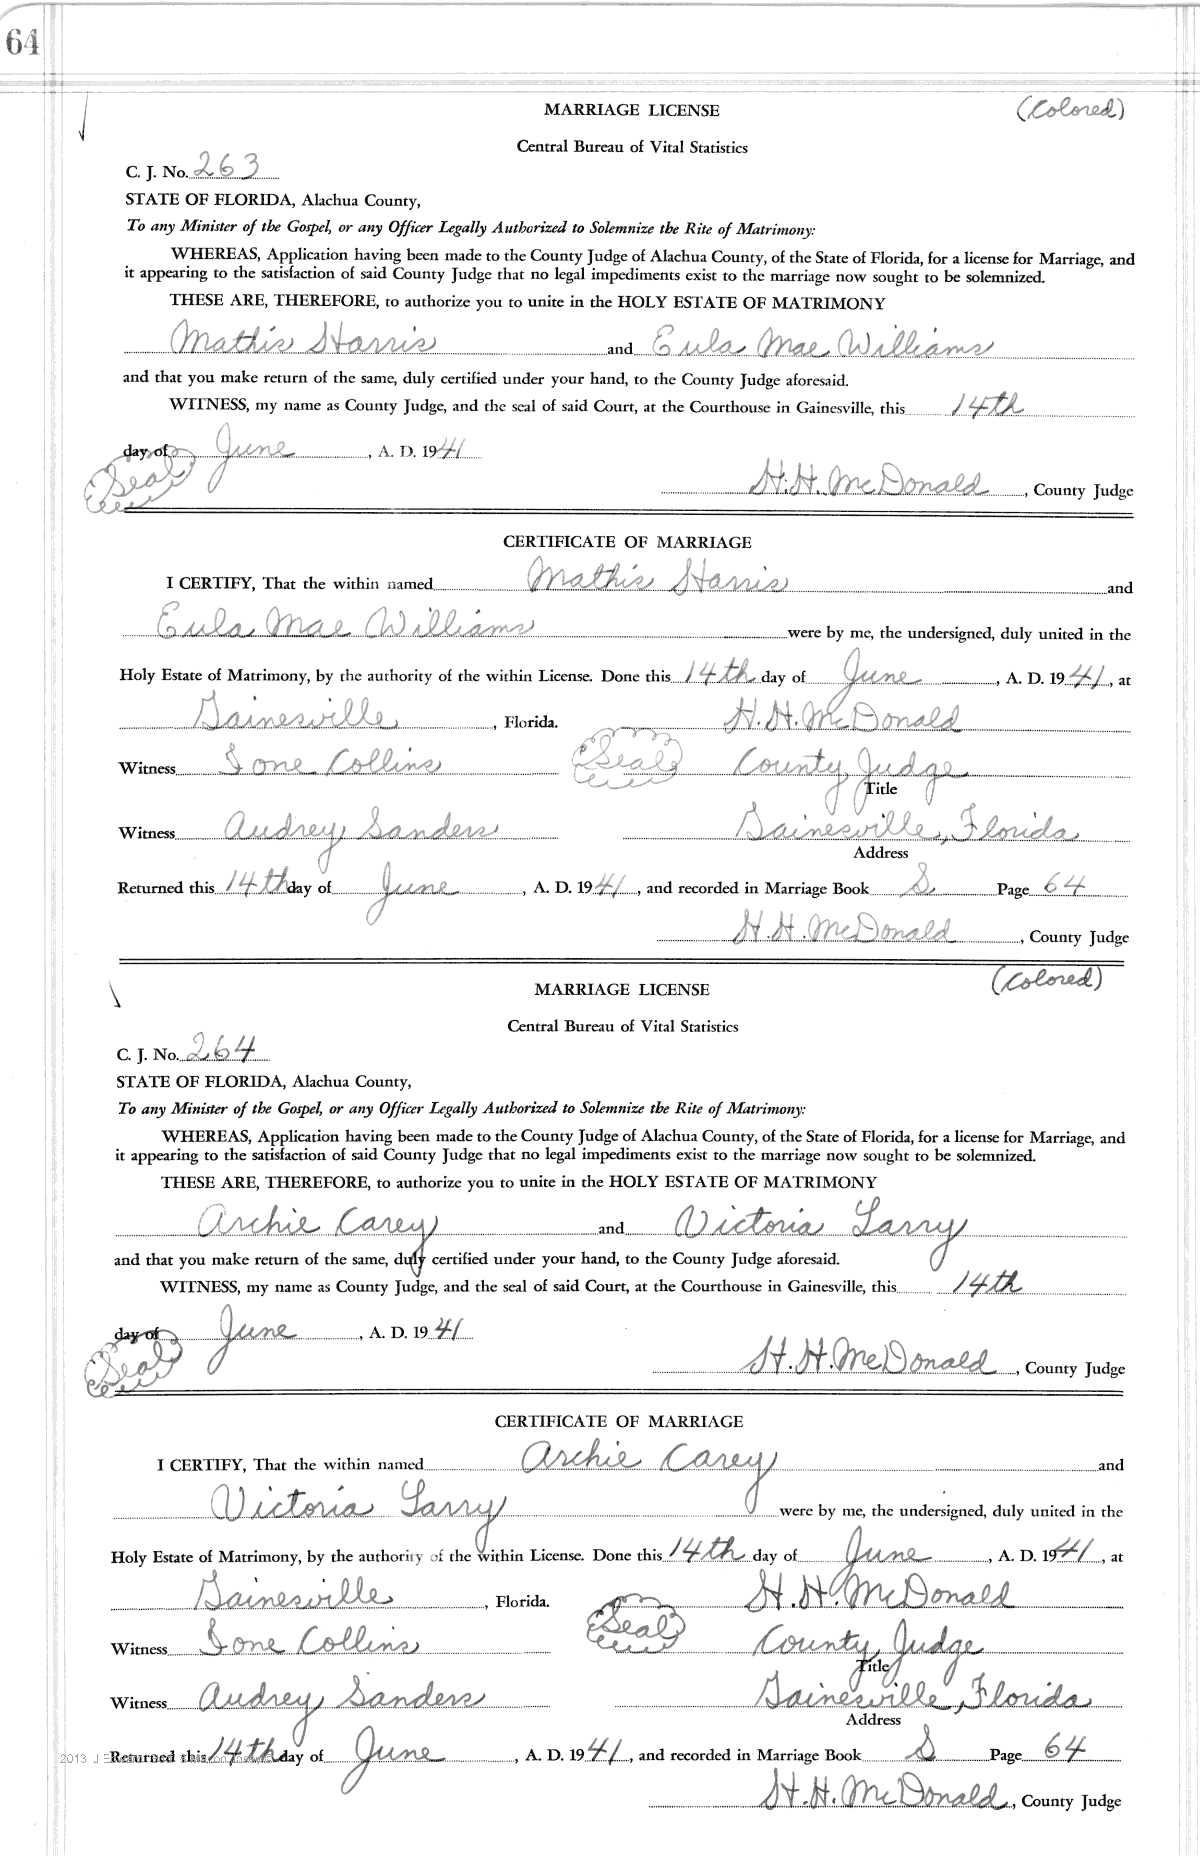 64
MARRIAGE LICENSE (Colored)
Central Bureau of Vital Statistics
C. J. No. 263
STATE OF FLORIDA, Alachua County,
To any Minister of the Gospel, or any Officer Legally Authorized to Solemnize the Rite of Matrimony:
WHEREAS, Application having been made to the County Judge of Alachua County, of the State of Florida, for a license for Marriage, and
it appearing to the satisfaction of said County Judge that no legal impediments exist to the marriage now sought to be solemnized.
THESE ARE, THEREFORE, to authorize you to unite in the HOLY ESTATE OF MATRIMONY
Mathis Harris and Eula Mae Williams
and that you make return of the same, duly certified under your hand, to the County Judge aforesaid.
WITNESS, my name as County Judge, and the seal of said Court, at the Courthouse in Gainesville, this 14th
day of June, A. D. 1941
Seal H. H. McDonald, County Judge
CERTIFICATE OF MARRIAGE
I CERTIFY, That the within named Mathis Harris and
Eula Mae Williams were by me, the undersigned, duly united in the
Holy Estate of Matrimony, by the authority of the within License. Done this 14th day of June, A. D. 1941, at
Gainesville, Florida. H. H. McDonald
Witness Ione Collins Seal County Judge
Title
Witness Audrey Sanders Gainesville, Florida
Address
Returned this 14th day of June, A. D. 1941, and recorded in Marriage Book S Page 64
H. H. McDonald, County Judge
(Colored)
MARRIAGE LICENSE
Central Bureau of Vital Statistics
C. J. No. 264
STATE OF FLORIDA, Alachua County,
To any Minister of the Gospel, or any Officer Legally Authorized to Solemnize the Rite of Matrimony:
WHEREAS, Application having been made to the County Judge of Alachua County, of the State of Florida, for a license for Marriage, and
it appearing to the satisfaction of said County Judge that no legal impediments exist to the marriage now sought to be solemnized.
THESE ARE, THEREFORE, to authorize you to unite in the HOLY ESTATE OF MATRIMONY
Archie Carey and Victoria Larry
and that you make return of the same, duly certified under your hand, to the County Judge aforesaid.
WITNESS, my name as County Judge, and the seal of said Court, at the Courthouse in Gainesville, this 14th
day of June, A. D. 1941
Seal H. H. McDonald, County Judge
CERTIFICATE OF MARRIAGE
I CERTIFY, That the within named Archie Carey and
Victoria Larry were by me, the undersigned, duly united in the
Holy Estate of Matrimony, by the authority of the within License. Done this 14th day of June, A. D. 1941, at
Gainesville, Florida. H. H. McDonald
Witness Ione Collins Seal County Judge
Title
Witness Audrey Sanders Gainesville, Florida
Address
2013 J Returned this 14th day of June, A. D. 1941, and recorded in Marriage Book S Page 64
H. H. McDonald, County Judge